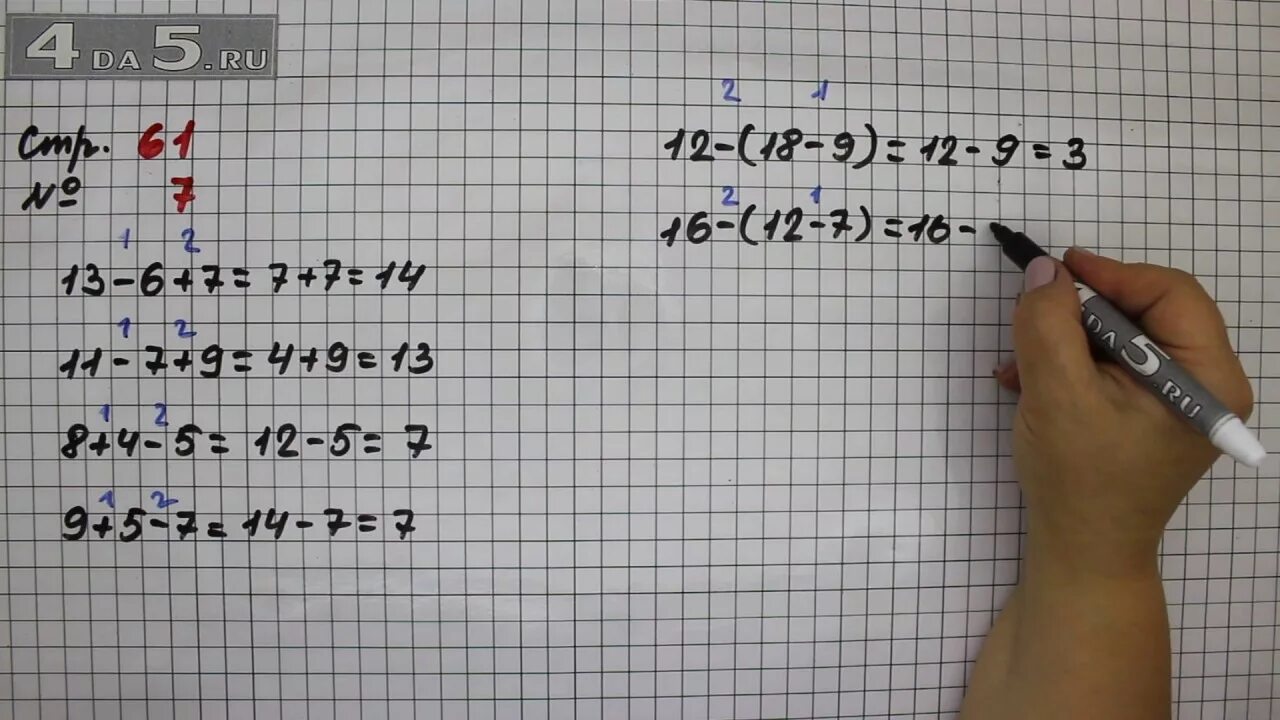 4DA5.RU
Стр. 61
№ 7
1 2
13-6+7=7+7=14
1 2
11-7+9=4+9=13
1 2
8+4-5=12-5=7
1 2
9+5-7=14-7=7
2 1
12-(18-9)=12-9=3
2 1
16-(12-7)=16-
4DA5.RU